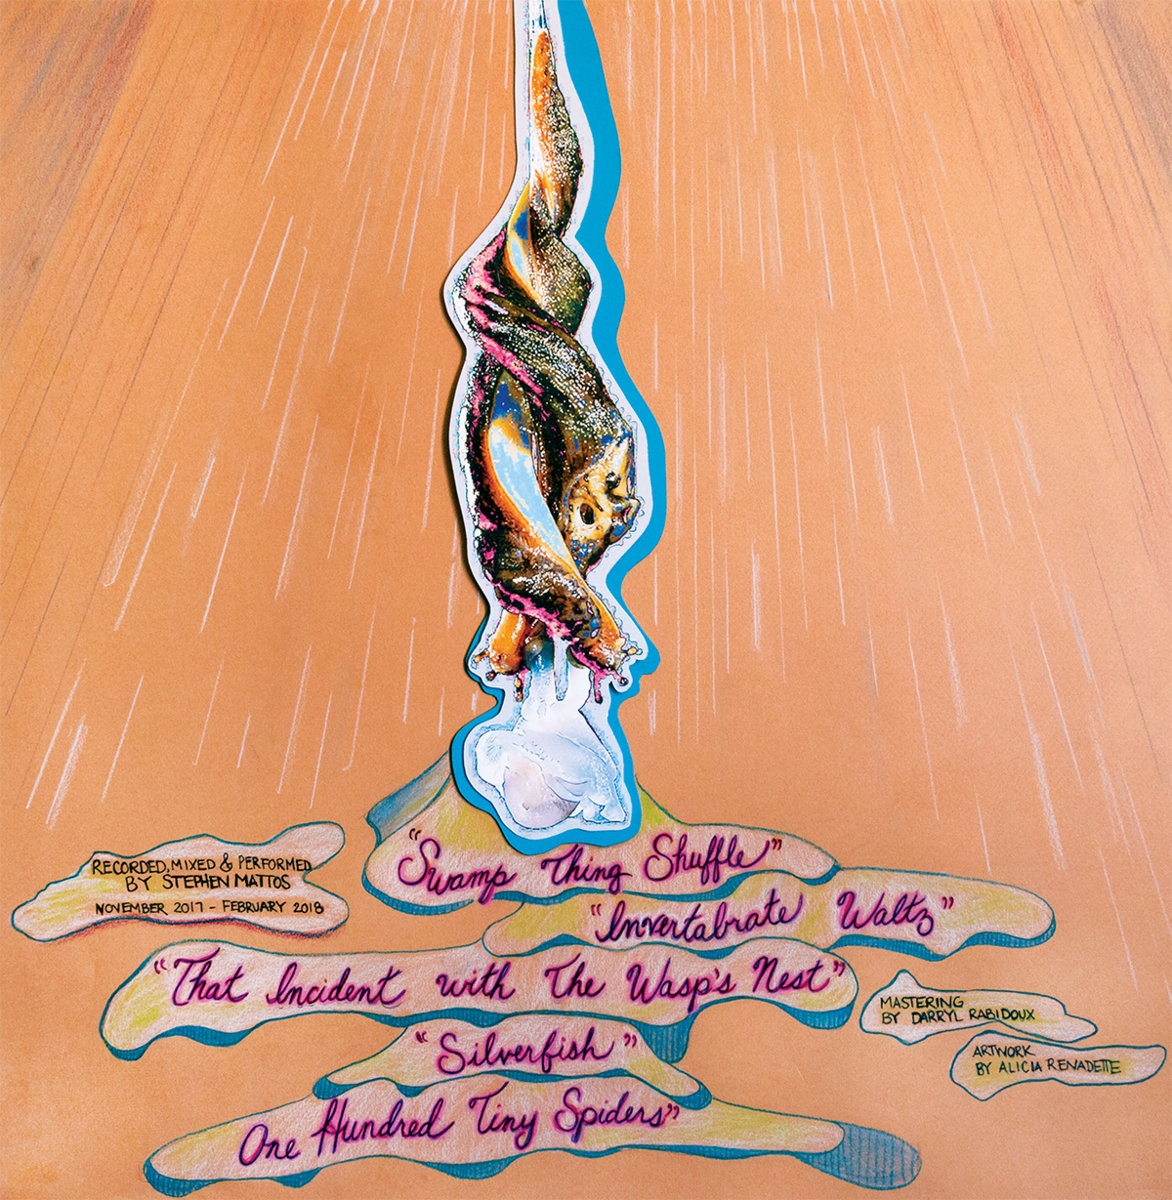 "Swamp Thing Shuffle"
RECORDED, MIXED & PERFORMED
BY STEPHEN MATTOS
NOVEMBER 2017 - FEBRUARY 2018
"Invertabrate Waltz"
"That Incident with The Wasp's Nest"
MASTERING
BY DARRYL RABIDOUX
"Silverfish"
ARTWORK
BY ALICIA RENADETTE
One Hundred Tiny Spiders"